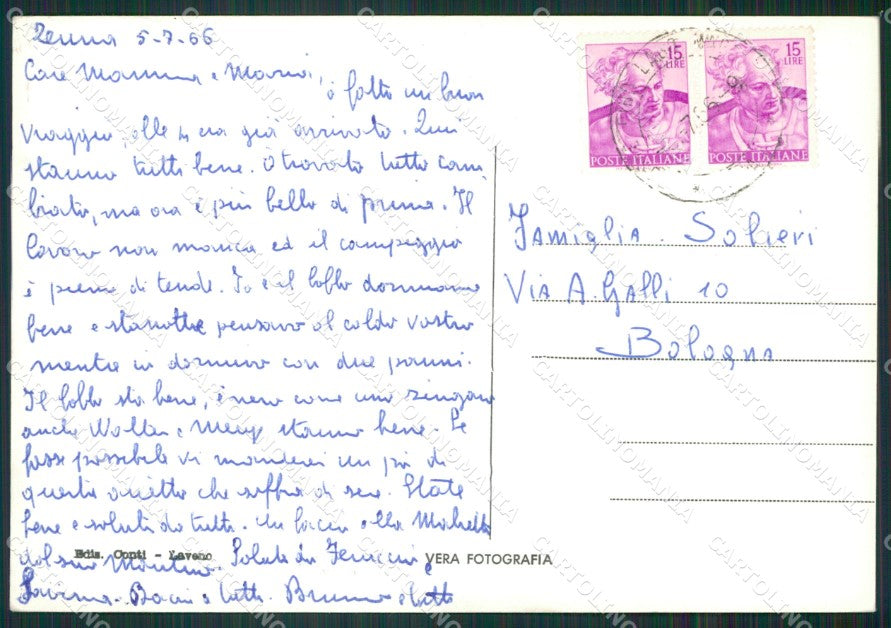 Zenna 5-7-66
Care Mamma e Maria,
ò fatto un buon
viaggio, alle 14 ero già arrivato. Qui
stanno tutti bene. ò trovato tutto cam
biato, ma ora è più bello di prima. Il
lavoro non manca ed il campeggio
è pieno di tende. Io e il babbo dormiamo
bene e stanotte pensavo al caldo vostro
mentre io dormivo con due panni.
Il babbo sta bene, è nero come uno zingaro
anche Walter e stanno bene. Se
fosse possibile vi manderei un po' di
questa arietta che soffia di sera. State
bene e saluti da tutti. Un bacio alla
dal suo Saluti da e
Bacioni a tutti. Bruno
Ediz. Conti - Laveno
VERA FOTOGRAFIA
15 LIRE
POSTE ITALIANE
15 LIRE
POSTE ITALIANE
Famiglia Solieri
Via A. Galli 10
Bologna
CARTOLINOMANIA